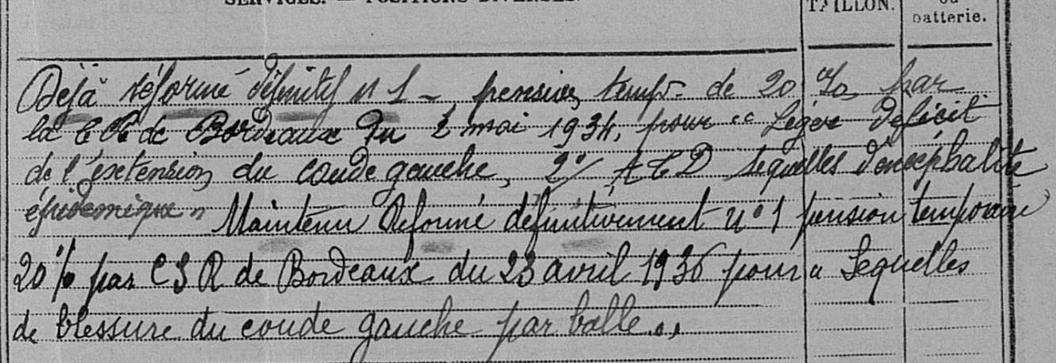 SERVICES. — POSITIONS DIVERSES.
TAILLON.
ou
batterie.
Déjà réformé définitif n° 1 – pension temp. de 20 % par
la C R de Bordeaux du 2 mai 1934, pour "Léger déficit
de l'extension du coude gauche, 2°/ A C D sequelles d'encéphalite
épidémique" Maintenu Réformé définitivement n° 1 pension temporaire
20 % par C S R de Bordeaux du 23 avril 1936 pour " Sequelles
de blessure du coude gauche par balle."